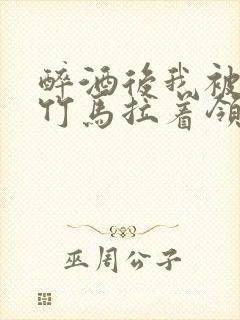 醉酒後我被
竹马拉着领
巫周公子